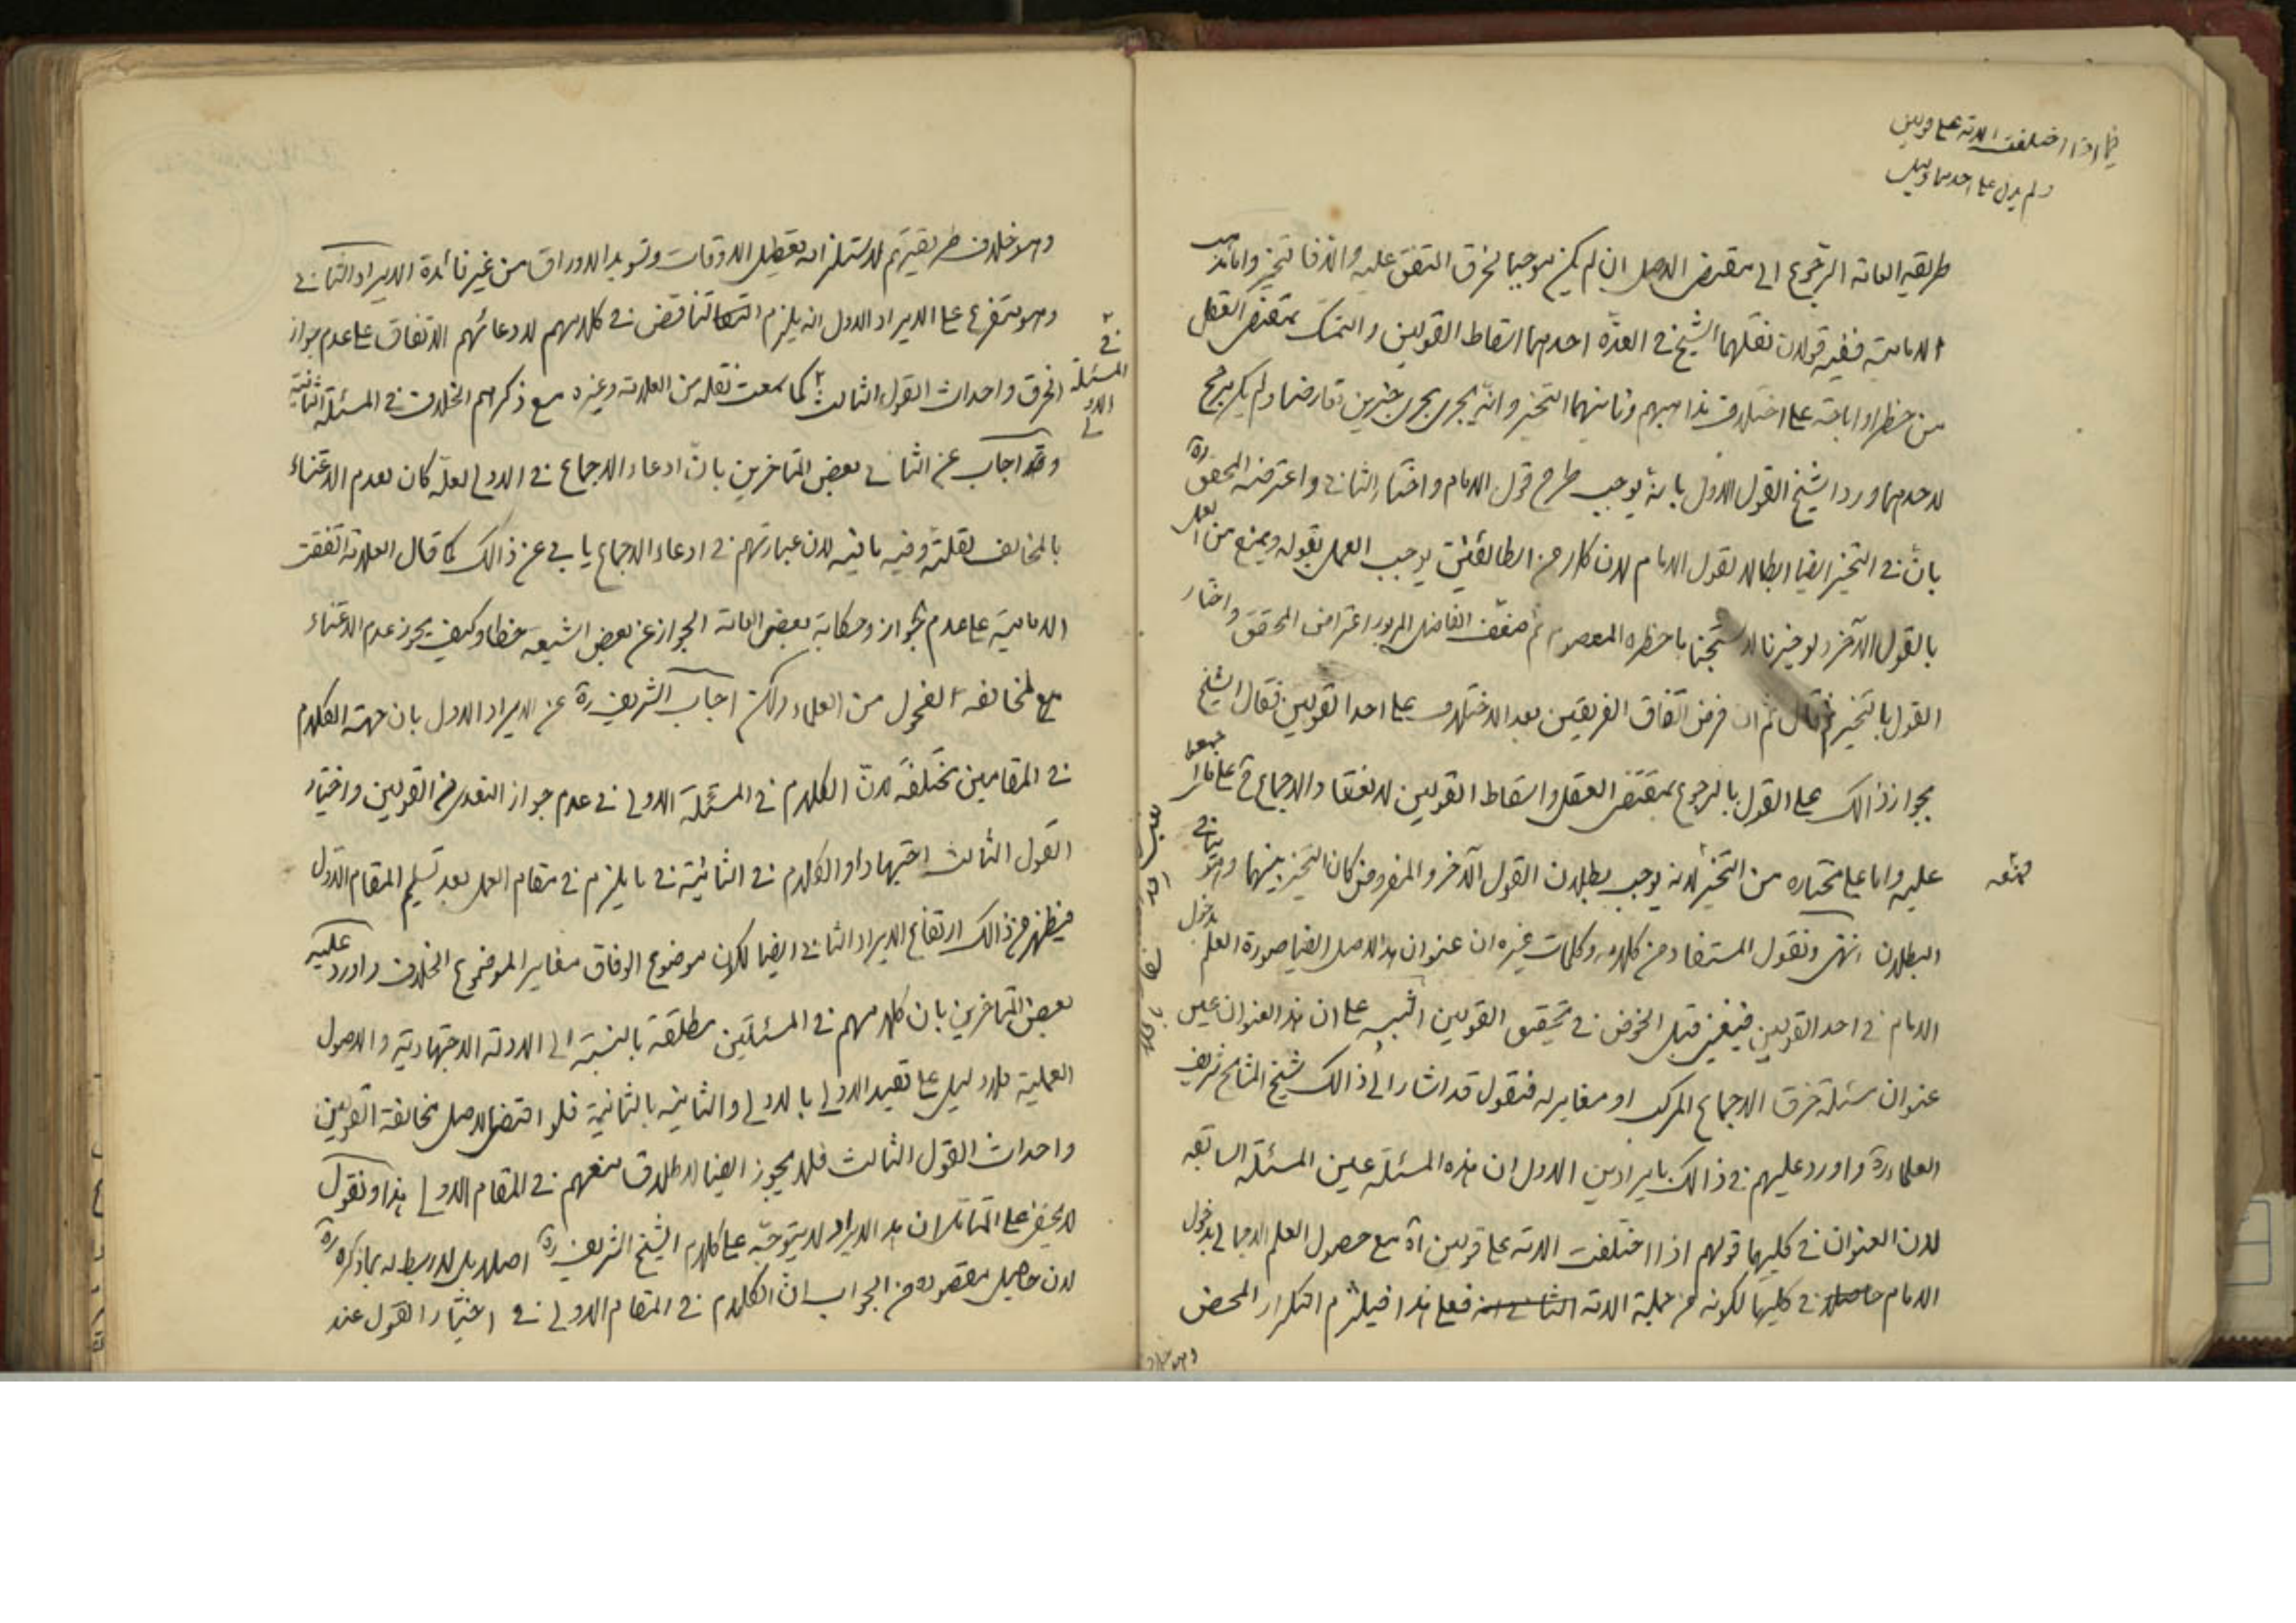 فيما اذا اختلفت الامة على قولين
ولم يدل على احدهما دليل
طريقة العامة الرجوع الى مقتضى الاصل ان لم يكن موجبا لخرق المتفق عليه والا فالتخيير واما مذهب
الامامية ففيه قولان نقلهما الشيخ في العدّة احدهما اسقاط القولين والتمسك بمقتضى العقل
من حظر او اباحة على اختلاف مذاهبهم وثانيهما التخيير وانّه يجرى مجرى خبرين تعارضا ولم يكن مرجح
لاحدهما ورد الشيخ القول الاول بانه يوجب طرح قول الامام واختار الثانى واعترضه المحقق ره
بانّ في التخيير ايضا ابطالا لقول الامام لان كلا من الطائفتين يوجب العمل بقوله ويمنع من العمل
بالقول الآخر ولو خيرنا لاستبحنا ما حظره المعصوم ثم ضعّف الفاضل المزبور اعتراض المحقق واختار
القول بالتخيير ثم قال ثم ان فرض اتفاق الفريقين بعد الاختلاف على احد القولين فقال الشيخ
بجواز ذالك على القول بالرجوع بمقتضى العقل واسقاط القولين لانعقاد الاجماع ح على ما اجمعوا
عليه واما على مختاره من التخيير لانه يوجب بطلان القول الآخر والمفروض كان التخيير بينهما وهو ينافى
البطلان انتهى ونقول المستفاد من كلامه وكلمات غيره ان عنوان هذا الاصل ايضا صورة العلم بدخول
الامام في احد القولين فينبغى قبل الخوض في تحقيق القولين التنبيه على ان هذا العنوان عين
عنوان مسئلة خرق الاجماع المركب او مغاير له فنقول قد اشار الى ذالك شيخ المشايخ شريف
العلماء ره واورد عليهم في ذالك بايرادين الاول ان هذه المسئلة عين المسئلة السابقة
لان العنوان في كليهما قولهم اذا اختلفت الامة على قولين آه مع حصول العلم الاجمالى بدخول
الامام في كليهما لكونه من جملة الامة فعلى هذا فيلزم التكرار المحض
وهو خلاف
وهو خلاف طريقتهم لاستلزامه تعطيل الاوقات وتسويد الاوراق من غير فائدة الايراد الثانى
وهو متفرع على الايراد الاول انه يلزم التناقض في كلامهم لادعائهم الاتفاق على عدم جواز
الخرق واحداث القول الثالث كما سمعت نقله من العلامة وغيره مع ذكرهم الخلاف في المسئلة الثانية
في المسئلة الاولى
وقد اجاب عن الثانى بعض المتاخرين بانّ ادعاء الاجماع في الاولى لعلّه كان لعدم الاعتناء
بالمخالف لقلته وفيه ما فيه لان عبارتهم في ادعاء الاجماع يابى عن ذالك كما قال العلامة اتفقت
الامامية على عدم الجواز وحكاية بعض العامة الجواز عن بعض الشيعة خطا وكيف يجوز عدم الاعتناء
مع مخالفة الفحول من العلماء ولكن اجاب الشريف ره عن الايراد الاول بان جهة الكلام
في المقامين مختلفة لانّ الكلام في المسئلة الاولى في عدم جواز التعدى من القولين واختيار
القول الثالث اجتهادا والكلام في الثانية في ما يلزم في مقام العمل بعد تسليم المقام الاول
فيظهر من ذالك ارتفاع الايراد الثانى ايضا لكون موضوع الوفاق مغايرا لموضوع الخلاف واورد عليه
بعض المتاخرين بان كلامهم في المسئلتين مطلقة بالنسبة الى الادلة الاجتهادية والاصول
العملية فلا دليل على تقييد الاولى بالاولى والثانية بالثانية فلو اقتضى الاصل مخالفة القولين
واحداث القول الثالث فلا يجوز ايضا لاطلاق منعهم في المقام الاول هذا ونقول
لا يخفى على المتامل ان هذا الايراد لا يتوجّه على كلام الشيخ الشريف ره اصلا بل لا ربط له بما ذكره ره
لان حاصل مقصوده من الجواب انّ الكلام في المقام الاول في اختيار القول عند